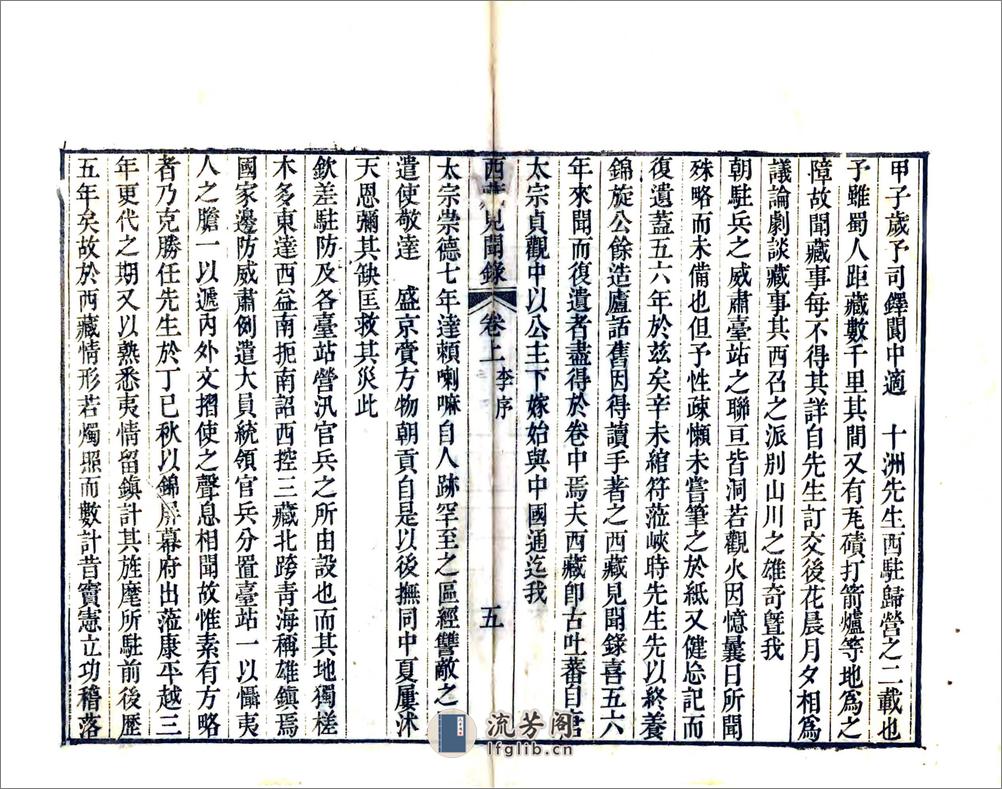 甲子歲予司鐸閬中適 十洲先生西駐歸營之二載也
予雖蜀人距藏數千里其間又有瓦磧打箭爐等地為之
障故聞藏事每不得其詳自先生訂交後花晨月夕相為
議論劇談藏事其西召之派別山川之雄奇暨我
朝駐兵之威肅臺站之聯亘皆洞若觀火因憶曩日所聞
殊略而未備也但予性疎懶未嘗筆之於紙又健忘記而
復遺蓋五六年於茲矣辛未綰符蒞峽時先生先以終養
錦旋公餘造廬話舊因得讀手著之西藏見聞錄喜五六
年來聞而復遺者盡得於卷中焉夫西藏卽古吐蕃自唐
太宗貞觀中以公主下嫁始與中國通迄我
西藏見聞錄 卷上 李序 五
太宗崇德七年達賴喇嘛自人跡罕至之區經讐敵之
遣使敬達 盛京賫方物朝貢自是以後撫同中夏屢沭
天恩彌其缺匡救其災此
欽差駐防及各臺站營汛官兵之所由設也而其地獨槎
木多東達西益南扼南詔西控三藏北跨青海稱雄鎮焉
國家邊防威肅例遣大員統領官兵分置臺站一以懾夷
人之膽一以遞內外文摺使之聲息相聞故惟素有方略
者乃克勝任先生於丁巳秋以錦屏幕府出蒞康平越三
年更代之期又以熟悉夷情留鎮計其旌麾所駐前後歷
五年矣故於西藏情形若燭照而數計昔竇憲立功稽落
流芳閣
lfglib.cn